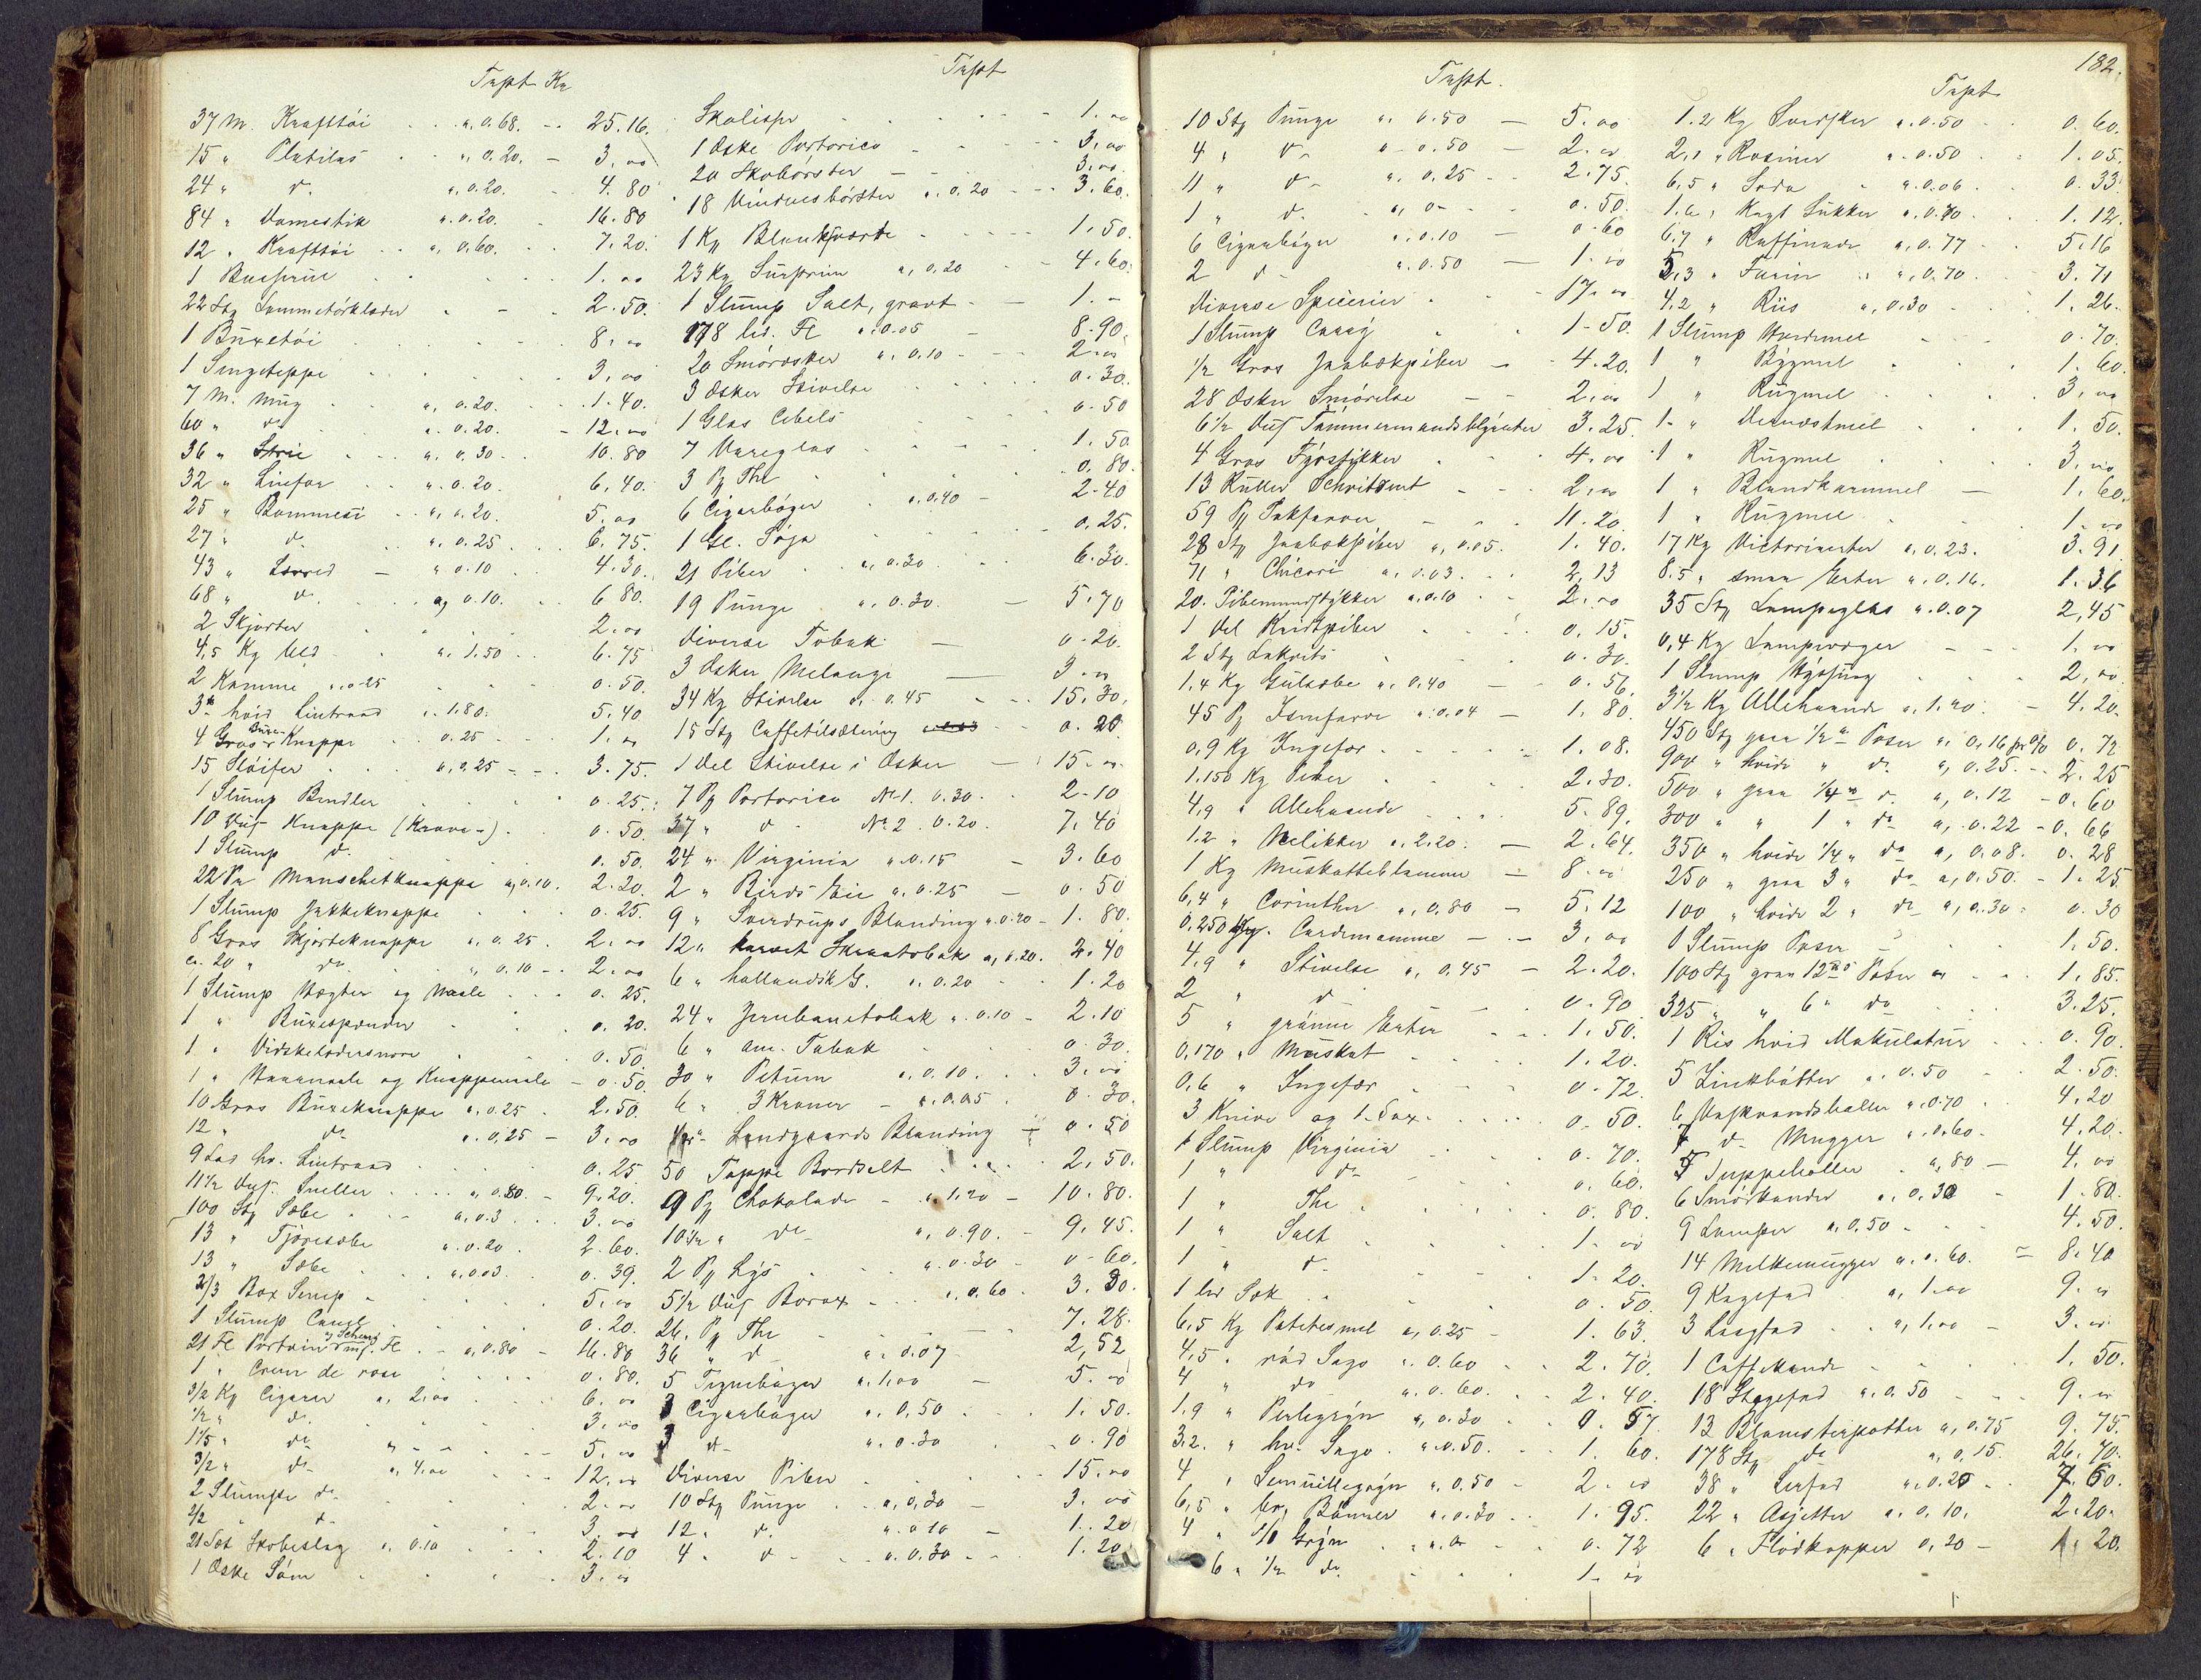 Taxt Kr
37 M. Krafttøi " 0.68. 25.16.
15 " Platilas " 0.20. 3,00
24 " do " 0.20. 4.80
84 " Domestik " 0.20. 16.80
12 " Krafttøi " 0,60. 7.20.
1 1.00
22 Stk Lommetørklæder 2.50.
1 Buxetøi 8,00
1 Sengeteppe 3,00
7 M. " 0.20. 1.40.
60 " do " 0.20. 12.00
36 " Strie " 0.30 10.80
32 " " 0.20. 6,40.
25 " Bommesi " 0.20. 5.00
27 " do " 0.25 6.75.
43 " Lærred " 0.10 4.30.
68 " do " 0.10. 6 80.
2 Skjorter 2.00
4,5 Kg Uld " 1.50 6.75
2 Kamme " 0.25 0.50.
3 hvid Lintraad " 1.80. 5.40
4 Gros Buxe-Knappe 0.25 1.00
15 Sløifer " 0,25 3.75.
1 Slump Bendler 0.25.
10 Dus Knappe (Krave-) 0.50.
1 Slump do 0.50.
22 Par Manschetknappe a, 0.10. 2.20.
1 Slump Jakkeknappe 0.25.
8 Gros Skjorteknappe " 0.25. 2.00
ca. 20 " do " 0.10 2.00
1 Slump Vægter og Maale 0.25.
1 " Buxespænder 0.20.
1 " 0.50.
1 " Haarnaale og Knappenaale 0.50.
10 Gros Buxeknappe " 0.25 2.50.
12 " do " 0.25 3.00
9 Lad hv. Lintraad 0.25
11½ Dus. Sneller " 0.80. 9.20.
100 Stk Sæbe " 0.3 3.00
13 " Tjæresæbe " 0.20. 2.60.
13 " Sæbe " 0.03. 0.39.
2/3 Box Senep 5.00
1 Slump Canel 0.20.
21 Fl Portvin og Scherry " 0.80 16.80
1 " Crem de rose 0.80.
3/2 Kg Cigarer " 2.00 6.00
½ " do 3.00
1/5 " do 5.00
3/2 " do " 4.00 12.00
2 Slumpe do 2.00
2/2 " do 3.00
21 Sæt Skobeslag " 0.10 2.10
1 Æske Søm 3.00
Taxt
Skolisper 1.00
1 Æske Portorico 3.00
20 Skobørster 3.00
18 Vinduesbørster " 0.20 3.60.
1 Kg Blanksværte 1.50.
23 Kg " 0.20 4.60.
1 Slump Salt, grovt 1.-
178 lid. Fl " 0.05 8.90.
20 Smøræsker " 0.10 2.00
3 Æsker Stivelse 0.30.
1 Glas Cibels 0.50
7 Vareglas 1.50
3 Pk The 0.80.
6 Cigarbøger " 0.40 2.40
1 Gl. Soja 0.25.
21 Piber " 0.30 6.30.
19 Punge " 0.30. 5.70
diverse Tobak 0.20.
3 Æsker Melange 3.00
34 Kg Stivelse " 0.45 15.30.
15 Stk Caffetilsætning 0.20.
1 Del Stivelse i Æsker 15.00
7 Pk Portorico No 1. 0.30. 2.10
37 " do No 2. 0.20. 7.40
24 " Virginia " 0.15 3.60
2 " Birds Eie " 0.25 0.50
9 " Sverdrups Blanding " 0.20 1.80.
12 " karvet Skraatobak " 0.20. 2.40
6 " hollandsk G. " 0.20 1.20
24 " Jernbanetobak " 0.10 2.10
6 " am. Tabak 0.30.
30 " Petum " 0.10. 3.00
6 " 3 Kroner " 0.05 0.30.
Landgaards Blanding 0.50
50 Toppe Bordsalt 2.50.
9 Pk Chokolade " 1.20 10.80.
10½ " do " 0.90. 9.45.
2 Pk Lys " 0.30 0.60.
5½ Dus Borax " 0.60 3.30.
26. Pk The 7.28.
36 " do " 0.07 2,52
5 " 1.00 5.00
3 Cigarbøger " 0.50 1.50.
3 do " 0.30 0.90
diverse Piber 15.00
10 Stk Punge " 0,30 3.00
12 " do " 0.10 1.20
4 " do " 0.30 1.20
Taxt.
10 Stk Punge " 0.50 5.00
4 " do " 0.50 2.00
11 " do " 0.25 2.75.
1 " do 0.50.
6 Cigarbøger " 0.10 0.60
2 do " 0.50 1.00
Diverse Spicerier 17.00
1 Slump 1.50.
½ Gros Snebækpiber 4.20.
28 Æsker Smørelse 2,00
6½ Dus Tømmermandsblyanter 3.25.
4 Gros Fyrstikker 4.00
13 Ruller 2.00
59 Pk Takfarver 11.20.
28 Stk Snebækpiber " 0.05. 1.40.
71 " Chicori " 0.03. 2,13
20. Pibemundstykker " 0.10 2.00
1 Del Kridtpiber 0.15.
2 Stk Lakrits 0.30.
1,4 Kg Gulsæbe " 0.40 0.56.
45 Pk " 0.04 1.80.
0,9 Kg Ingefær 1.08.
1.150 Kg Peber 2.30.
4,9 " Allehaande 5.89.
1.2 " Nelikker " 2.20. 2.64.
1 Kg Muskatteblomme 8.00
6,4 " Corinther " 0.80 5.12
0,250 Kg. Cardemomme 3.00
4,9 " Stivelse " 0.45 2.20.
2 " do 0.90.
5 " grønne Erter 1.50.
0,170 " Muskat 1.20.
0,6 " Ingefær 0.72.
3 Knive og 1 Sax 0.50.
1 Slump Virginia 0.70.
1 " do 0.60.
1 " The 0.80.
1 " Salt 1.00
1 " do 1.20.
1 0.50.
6,5 Kg Potetesmel " 0.25 1.63.
4,5 " rød Sago " 0.60 2.70.
4 " do " 0.60. 2.40.
1.9 " Perlegryn " 0.30 0.57.
3.2. " hv. Sago " 0.50. 1.60.
4 " Semullegryn " 0.50 2.00
6,5 " br. Bønner " 0.30 1.95.
4 " Gryn 0.72
6 " ½ do 1.00
182.
Taxt
1.2 Kg Svedsker " 0.50 0.60.
2,1 " Rosiner " 0.50 1.05.
6,5 " Soda " 0.06 0.33
1.6 " Sukker " 0.70 1.12.
6.7 " Raffinade " 0.77 5.16
5,3 " Farin " 0.70. 3.71
4.2 " Riis " 0.30 1.26.
1 Slump 0.70.
1 " Bygmel 1.60.
1 " Rugmel 3.00
1 " 1.50.
1 " Rugmel 3.00
1 " Blandkornmel 1.60.
1 " Rugmel 1.00
17 Kg Victoriaerter " 0.23. 3.91
8.5 " smaa Erter " 0.16. 1.36
35 Stk Lampeglas " 0.07 2,45
0,4 Kg Lampevæger 1.00
1 Slump 2,00
3½ Kg Allehaande " 1.20 4.20
450 Stk graa ½ Poser " 0.16 pr % 0.72
900 " hvide " do " 0.25. 2.25
500 " graa ¼ do " 0.12 0.60
300 " " 1 " do " 0.22 0.66
350 " hvide ¼ " do " 0.08. 0.28
250 " graa 3 " do " 0.50. 1.25
100 " hvide 2 " do " 0.30 0.30
1 Slump Poser 1.50.
100 Stk graa 12 Poser 1.85.
325 " " 6 " do 3.25.
1 Ris hvid Makulatur 0.90.
5 Zinkbøtter " 0.50 2.50.
6 Vaskvandsboller " 0.70 4.20
7 do Mugger " 0.60 4.20.
5 Suppeboller " 80 4.00
6 Smørkander " 0.30 1.80.
9 Lamper " 0.50 4.50.
14 Melkemugger " 0.60. 8.40
9 Kagefad " 1.00 9.00
3 " 1.00 3.00
1 Caffekande 1.50.
18 Stegefad " 0.50 9.00
13 Blomsterpotter " 0.75 9.75.
178 Stk do " 0.15. 26.70.
38 " Lerfad " 0.20 7.60.
22 " Asjetter " 0.10. 2.20.
6 " Flødkopper 0,20 1.20.